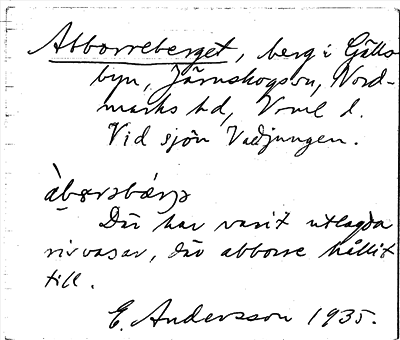 Abborreberget, berg i Gälls-
byn, Järnskogs sn, Nord-
marks hd, Vrml l.
Vid sjön Vadjungen.
Där har varit utlagda
risvasar, där abborre hållit
till.
E. Andersson 1935.